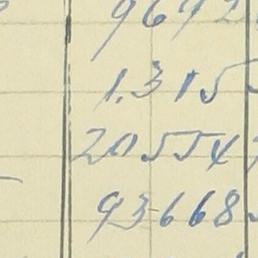 9692
1.315
20554
93668